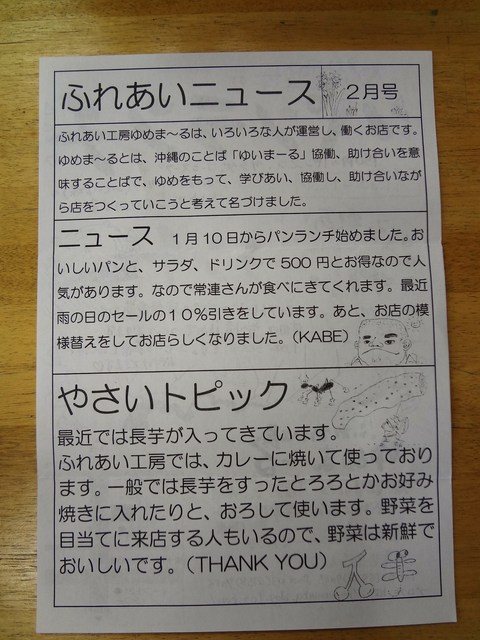 ふれあいニュース 2月号
ふれあい工房ゆめま~るは、いろいろな人が運営し、働くお店です。
ゆめま~るとは、沖縄のことば「ゆいまーる」協働、助け合いを意
味することばで、ゆめをもって、学びあい、協働し、助け合いなが
ら店をつくっていこうと考えて名づけました。
ニュース 1月10日からパンランチ始めました。お
いしいパンと、サラダ、ドリンクで500円とお得なので人
気があります。なので常連さんが食べにきてくれます。最近
雨の日のセールの10%引きをしています。あと、お店の模
様替えをしてお店らしくなりました。(KABE)
やさいトピック
最近では長芋が入ってきています。
ふれあい工房では、カレーに焼いて使っており
ます。一般では長芋をすったとろろとかお好み
焼きに入れたりと、おろして使います。野菜を
目当てに来店する人もいるので、野菜は新鮮で
おいしいです。(THANK YOU)